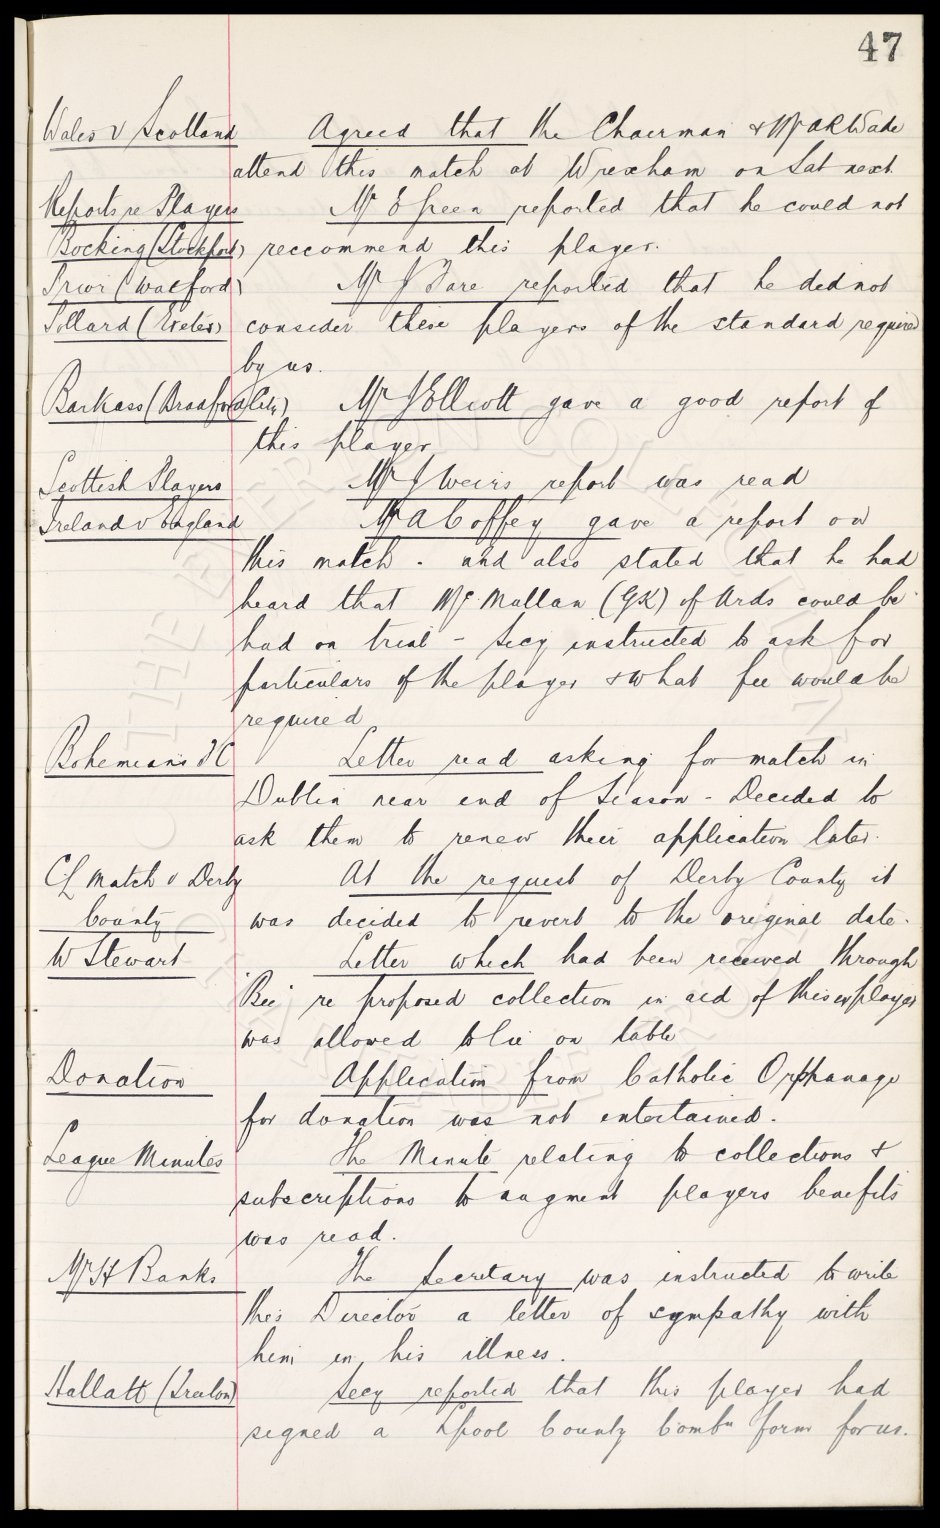 47
Wales v Scotland Agreed that the Chairman & Mr A R Wade
attend this match at Wrexham on Sat next.
Reports re Players Mr E Green reported that he could not
Bocking (Stockport) reccommend this player.
Prior (Watford) Mr J Fare reported that he did not
Pollard (Exeter) consider these players of the standard required
by us.
Barkass (Bradford City) Mr J Elliott gave a good report of
this player
Scottish Players Mr J Weirs report was read
Ireland v England Mr A Coffey gave a report on
this match. and also stated that he had
heard that McMullan (GK) of Ards could be
had on trial - Secy instructed to ask for
particulars of the player & what fee would be
required
Bohemians F C Letter read asking for match in
Dublin near end of Season - Decided to
ask them to renew their application later.
CL match v Derby At the request of Derby County it
County was decided to revert to the original date.
W Stewart Letter which had been received through
'Bee' re proposed collection in aid of this ex player
was allowed to lie on table
Donation Application from Catholic Orphanage
for donation was not entertained.
League Minutes The Minute relating to collections &
subscriptions to augment players benefits
was read.
Mr H Banks The Secretary was instructed to write
this Director a letter of sympathy with
him in his illness.
Hallatt (Treeton) Secy reported that this player had
signed a Lpool County Combn form for us.
THE EVERTON COLLECTION
CHARITABLE TRUST